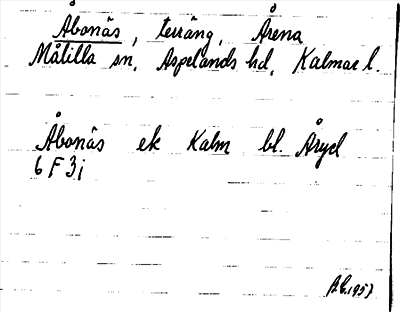 Åbonäs, terräng, Årena
Målilla sn, Aspelands hd, Kalmar l.
Åbonäs ek Kalm bl. Åryd
6 F 3 i
1957